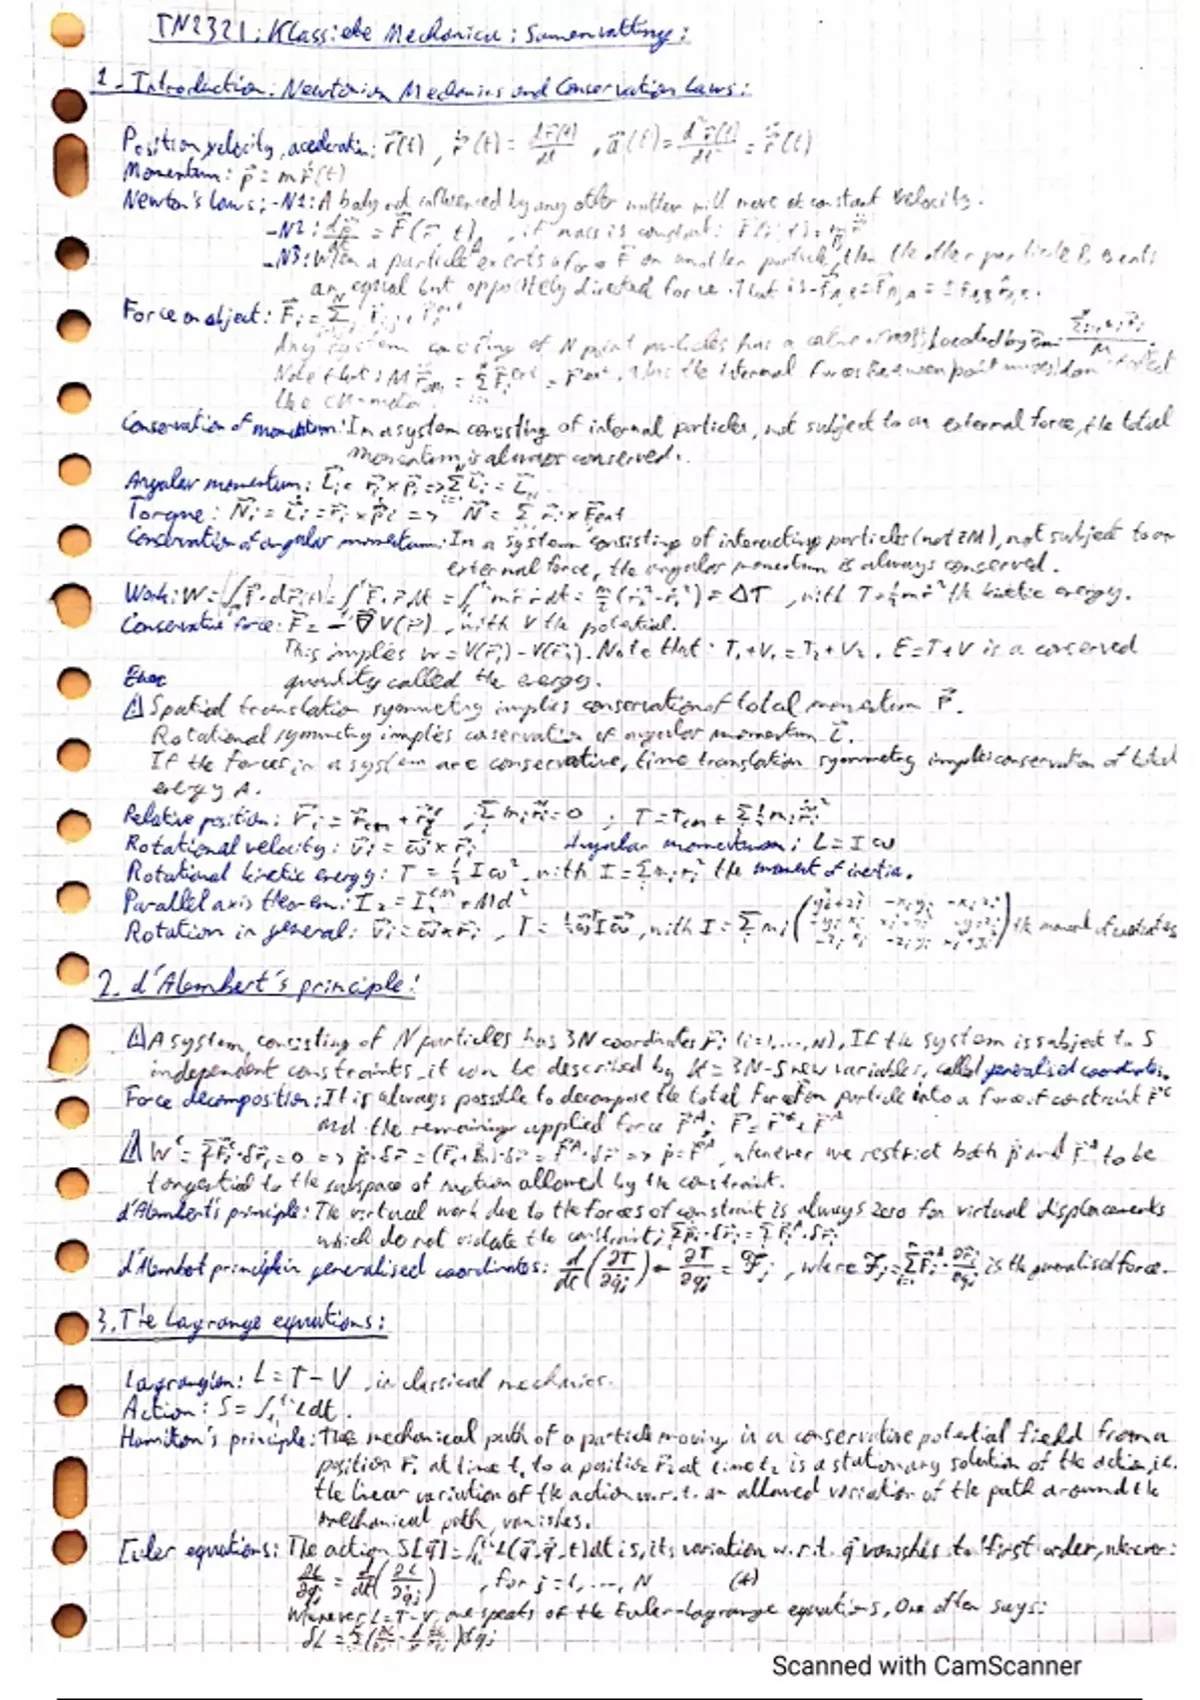 TN2321: Klassieke Mechanica: Samenvatting:
1. Introduction: Newtonian Mechanics and Conservation Laws:
Position, velocity, acceleration: r⃗(t), ṙ⃗(t) = dr⃗(t)/dt, a⃗(t) = d²r⃗(t)/dt² = r̈⃗(t)
Momentum: p⃗ = mṙ⃗(t)
Newton's laws: -N1: A body not influenced by any other matter will move at constant velocity.
-N2: dp⃗/dt = F⃗(r⃗, t), if mass is constant:
-N3: When a particle A exerts a force F⃗ on another particle, then the other particle B exerts
an equal but oppositely directed force. That is
Force on object: F⃗i = Σ
Any system consisting of N point particles has a center of mass, located by
Note that: M r̈⃗cm = Σ F⃗i^ext = F⃗ext. Thus the internal forces between point masses don't affect
the CM-motion.
Conservation of momentum: In a system consisting of internal particles, not subject to an external force, the total
momentum is always conserved.
Angular momentum: L⃗i = r⃗i × p⃗i => Σ L⃗i = L⃗
Torque: N⃗i = L̇⃗i = r⃗i × ṗ⃗i => N⃗ = Σ r⃗i × F⃗ext
Conservation of angular momentum: In a system consisting of interacting particles (not ZM), not subject to an
external force, the angular momentum is always conserved.
Work: W = ∫F⃗·dr⃗ = ∫F⃗·ṙ⃗dt = ∫mr̈⃗·ṙ⃗dt = m/2(ṙ₂²-ṙ₁²) = ΔT, with T=½mṙ² the kinetic energy.
Conservative force: F⃗ = -∇⃗V(r⃗), with V the potential.
This implies W = V(r⃗₁) - V(r⃗₂). Note that: T₁+V₁ = T₂+V₂. E=T+V is a conserved
quantity called the energy.
⚠ Spatial translation symmetry implies conservation of total momentum P⃗.
Rotational symmetry implies conservation of angular momentum L⃗.
If the forces in a system are conservative, time translation symmetry implies conservation of total
energy
Relative position: r⃗i = r⃗cm + r̃⃗i, Σ mi r̃⃗i = 0, T = Tcm + Σ½mi
Rotational velocity: v⃗i = ω⃗ × r⃗i Angular momentum: L = Iω
Rotational kinetic energy: T = ½Iω², with I = Σmiri² the moment of inertia.
Parallel axis theorem: Iz = Iz^CM + Md²
Rotation in general: v⃗i = ω⃗×r⃗i, T = ½ω⃗ᵀIω⃗, with I = Σmi (yi²+zi² -xiyi -xizi; -yixi xi²+zi² -yizi; -zixi -ziyi xi²+yi²) the moment of
2. d'Alembert's principle:
⚠ A system, consisting of N particles has 3N coordinates r⃗i (i=1,...,N). If the system is subject to S
independent constraints, it can be described by K = 3N-S new variables, called generalised coordinates.
Force decomposition: It is always possible to decompose the total force on particle into a force of constraint F⃗ᶜ
and the remaining applied force F⃗ᴬ: F⃗ = F⃗ᶜ + F⃗ᴬ
⚠ Wᶜ = ΣF⃗iᶜ·δr⃗i = 0 => ṗ⃗·δr⃗ = = F⃗ᴬ·δr⃗ => ṗ⃗ = F⃗ᴬ, whenever we restrict both ṗ⃗ and F⃗ᴬ to be
tangential to the subspace of motion allowed by the constraint.
d'Alembert's principle: The virtual work due to the forces of constraint is always zero for virtual displacements
which do not violate the constraint: Σṗ⃗i·δr⃗i = ΣF⃗iᴬ·δr⃗i
d'Alembert principle in generalised coordinates: d/dt(∂T/∂q̇j) - ∂T/∂qj = ℱj, where ℱj = ΣF⃗iᴬ·∂r⃗i/∂qj is the generalised force.
3. The Lagrange equations:
Lagrangian: L = T - V, in classical mechanics.
Action: S = ∫Ldt.
Hamilton's principle: The mechanical path of a particle moving in a conservative potential field from a
position r⃗₁ at time t₁ to a position r⃗₂ at time t₂ is a stationary solution of the action, i.e.
the linear variation of the action w.r.t. an allowed variation of the path around the
mechanical path, vanishes.
Euler equations: The action S[q⃗] = ∫L(q⃗, q̇⃗, t)dt is, its variation w.r.t. q⃗ vanishes to first order, whenever:
∂L/∂qj = d/dt(∂L/∂q̇j), for j=1,...,N
Whenever L=T-V, one speaks of the Euler-Lagrange equations, One often says:
δL = Σ(∂L/∂qj - d/dt ∂L/∂q̇j)δqj
Scanned with CamScanner